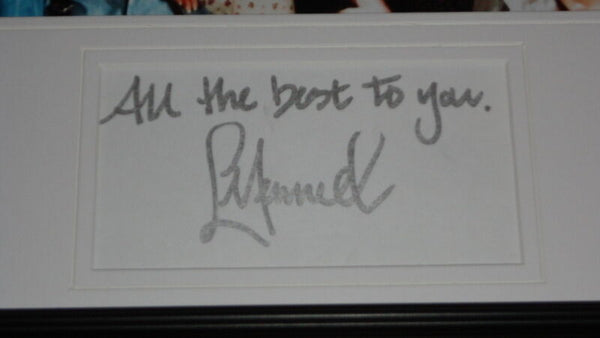 All the best to you.